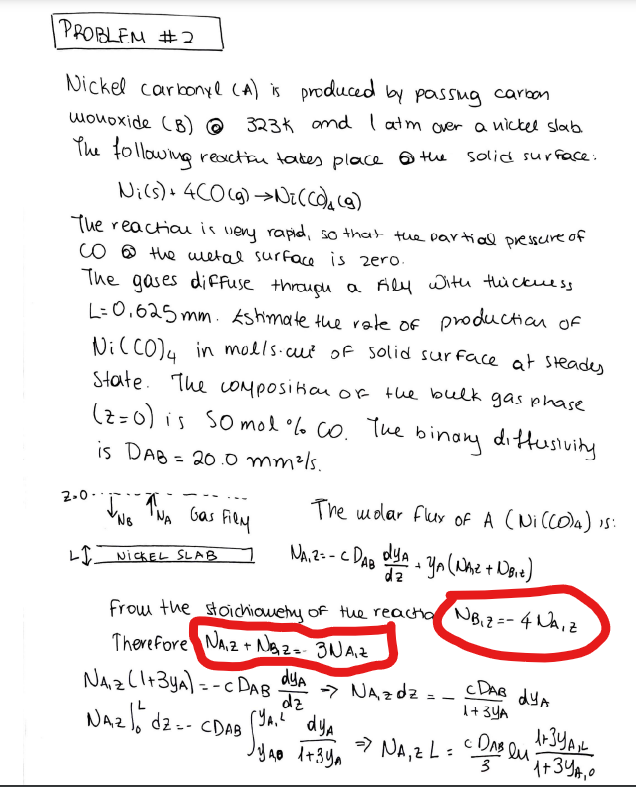 PROBLEM #2
Nickel carbonyl (A) is produced by passing carbon
monoxide (B) @ 323K and 1 atm over a nickel slab
The following reaction takes place @ the solid surface:
Ni(s) + 4CO(g) → Ni(CO)4(g)
The reaction is very rapid, so that the partial pressure of
CO @ the metal surface is zero.
The gases diffuse through a film with thickness
L=0,625mm. Estimate the rate of production of
Ni(CO)4 in mol/s·cm² of solid surface at steady
state. The composition of the bulk gas phase
(z=0) is 50 mol % CO. The binary diffusivity
is DAB = 20.0 mm²/s.
z=0
↓NB ↑NA Gas Film
L↕ NICKEL SLAB
The molar flux of A (Ni(CO)4) is:
NA,z = -c DAB dyA/dz + yA (NA,z + NB,z)
From the stoichiometry of the reaction NB,z = -4 NA,z
Therefore NA,z + NB,z = -3NA,z
NA,z (1+3yA) = -c DAB dyA/dz → NA,z dz = - cDAB/1+3yA dyA
NA,z ∫₀ᴸ dz = - cDAB ∫yA,0^yA,L dyA/1+3yA ⇒ NA,z L = c DAB/3 ln 1+3yA,L/1+3yA,0